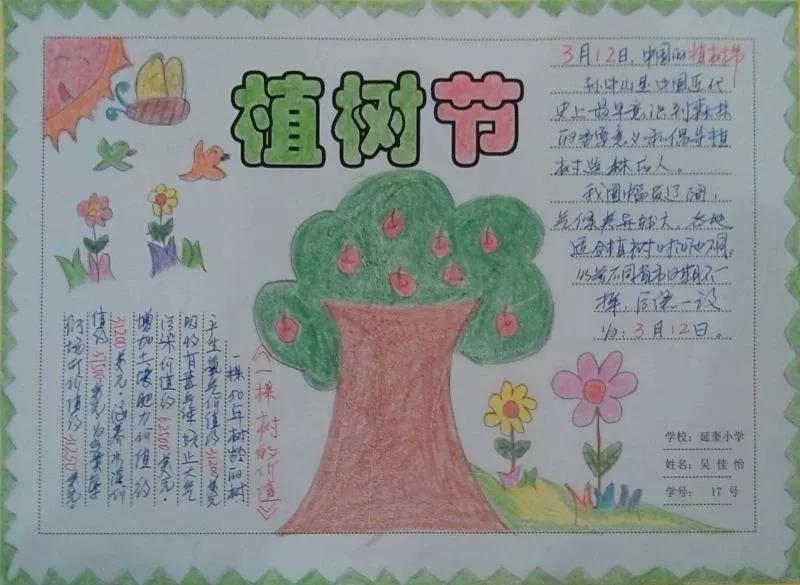 植树节
3月12日,中国的植树节
孙中山是中国近代
史上最早意识到森林
的重要意义和倡导植
树造林的人。
我国幅员辽阔,
气候差异较大,各地
适合植树时间也不同,
以前不同省市日期不一
样,后统一设
为:3月12日。
《一棵树的价值》
一棵50年树龄的树
产生氧气价值约31200美元
吸收有毒气体防止大气
污染价值约62500美元.
增加土壤肥力价值约
31200美元.涵养水源价
值约37500美元
价值约31250美元。
学校:延奎小学
姓名:吴佳怡
学号: 17号